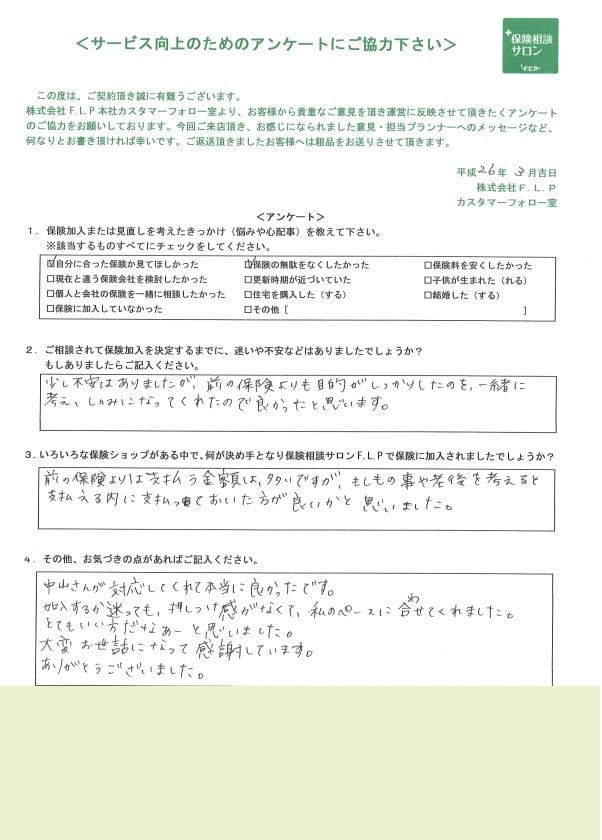 ＜サービス向上のためのアンケートにご協力下さい＞
+保険相談
サロン
F.L.P
この度は、ご契約頂き誠に有難うございます。
株式会社Ｆ.Ｌ.Ｐ本社カスタマーフォロー室より、お客様から貴重なご意見を頂き運営に反映させて頂きたくアンケート
のご協力をお願いしております。今回ご来店頂き、お感じになられました意見・担当プランナーへのメッセージなど、
何なりとお書き頂ければ幸いです。ご返送頂きましたお客様へは粗品をお送りさせて頂きます。
平成26年 3月吉日
株式会社Ｆ.Ｌ.Ｐ
カスタマーフォロー室
＜アンケート＞
１．保険加入または見直しを考えたきっかけ（悩みや心配事）を教えて下さい。
※該当するものすべてにチェックをしてください。
☑自分に合った保険か見てほしかった ☑保険の無駄をなくしたかった □保険料を安くしたかった
□現在と違う保険会社を検討したかった □更新時期が近づいていた □子供が生まれた（れる）
□個人と会社の保険を一緒に相談したかった □住宅を購入した（する） □結婚した（する）
□保険に加入していなかった □その他［ ］
２．ご相談されて保険加入を決定するまでに、迷いや不安などはありましたでしょうか？
もしありましたらご記入ください。
少し不安はありましたが、前の保険よりも目的がしっかりしたのを、一緒に
考え、しんみになってくれたので良かったと思います。
３．いろいろな保険ショップがある中で、何が決め手となり保険相談サロンＦ.Ｌ.Ｐで保険に加入されましたでしょうか？
前の保険よりは支払う金額は、多いですが、もしもの事や老後を考えると
支払える内に支払っておいた方が良いかと思いました。
４．その他、お気づきの点があればご記入ください。
中山さんが対応してくれて本当に良かったです。
加入するか迷っても、押しつけ感がなくて、私のペースに合わせてくれました。
とてもいい方だなぁーと思いました。
大変お世話になって感謝しています。
ありがとうございました。